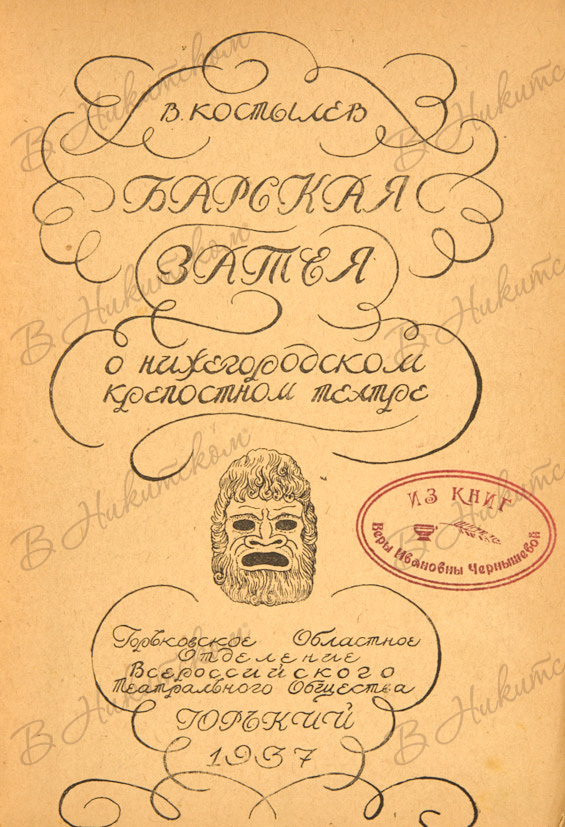 В. КОСТЫЛЕВ
БАРСКАЯ
ЗАТЕЯ
О НИЖЕГОРОДСКОМ
КРЕПОСТНОМ ТЕАТРЕ
ИЗ КНИГ
Веры Ивановны Чернышевой
Горьковское Областное
Отделение
Всероссийского
Театрального Общества
ГОРЬКИЙ
1937
В Никитском
В Никитском
В Никитском
В Никитском